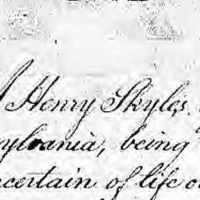 Henry Skyles
ylvania, being
certain of life o